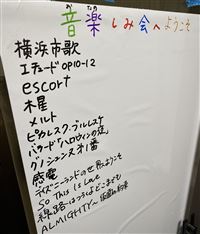 音楽しみ会へようこそ
横浜市歌
エチュードOP10-12
escort
木星
メルト
ピカレスク・ブルレスケ
バラード「ハロウィンの夜」
グノシエンヌ第1番
感電
ディズニーランドの世界へようこそ
So This Is Love
線路はつづくよどこまでも
ALMIGHTY～仮面の約束